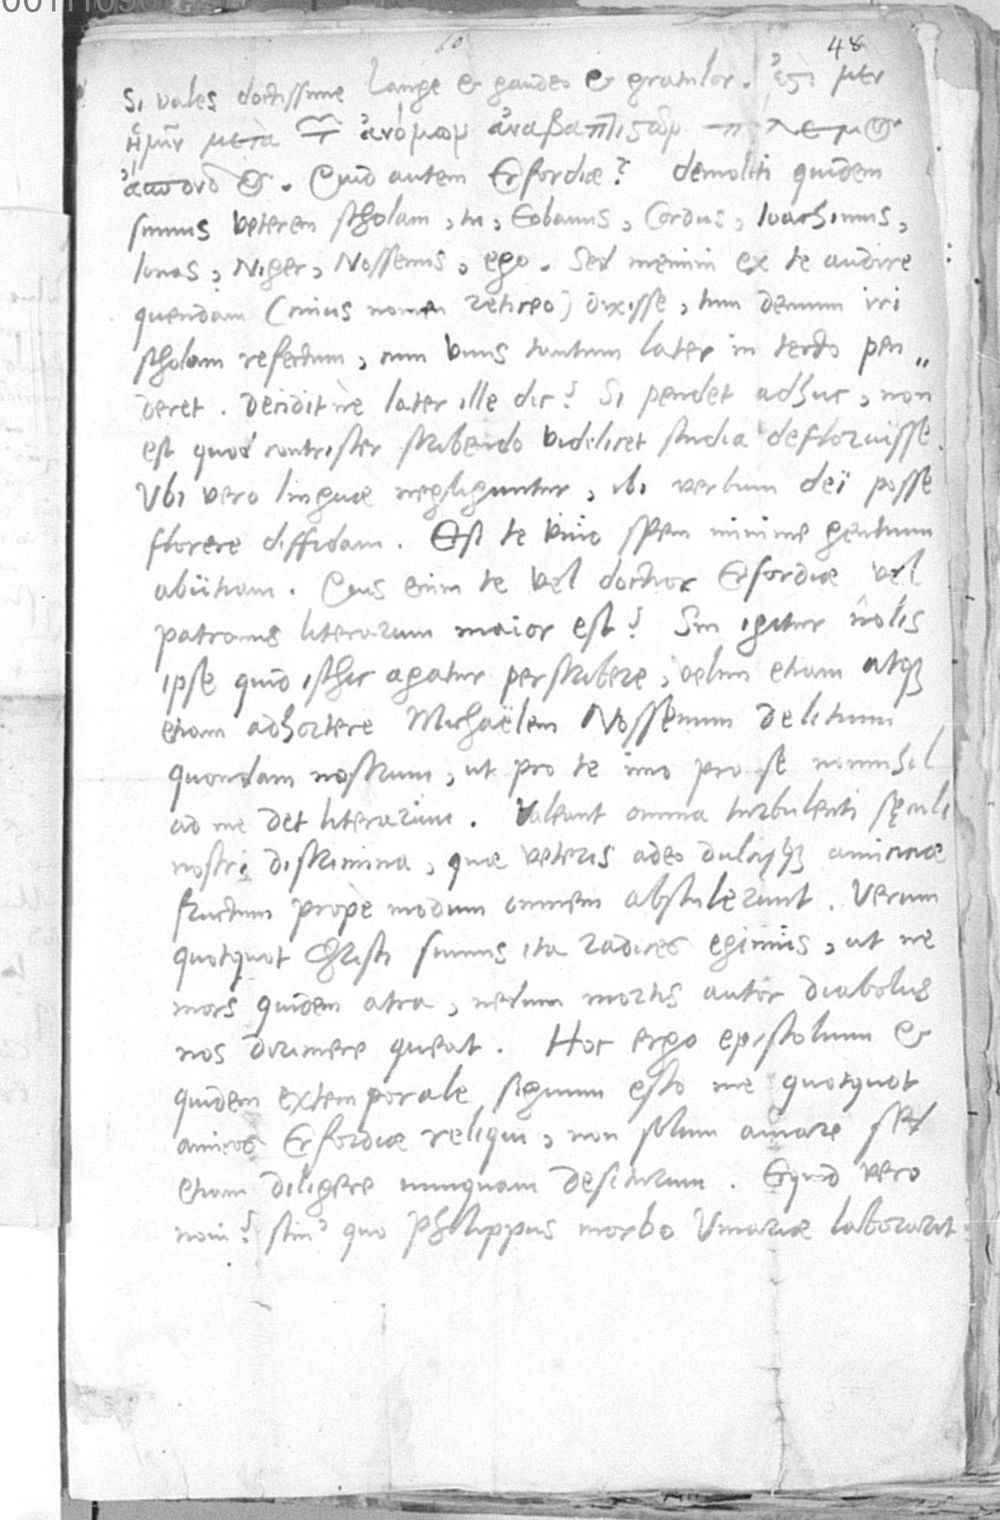 48
Si vales doctissime Lange & gaudeo & gratulor. ἐστὶ μὲν
ἡμῖν μετὰ τῶν ἀνόμων ἀναβαπτιστῶν πόλεμος
ἄσπονδος. Quid autem Erfordiæ? demoliti quidem
sumus veterem scholam, tu, Eobanus, Cordus, Ioachimus,
Ionas, Niger, Nossenus, ego. Sed memini ex te audire
quendam (cuius nomen reticeo) dixisse, tum demum iri
scholam refectum, cum vnus tantum later in tecto pen„
deret. Deciditne later ille dic? Si pendet adhuc, non
est quod contrister scribendo videlicet studia defloruisse.
Vbi vero linguæ negliguntur, ibi verbum deï posse
florere diffidam. Est te vivo spem minime gentium
abituram. Quis enim te vel doctior Erfordiæ vel
patronus literarum maior est? Sin igitur nolis
ipse quid isthic agatur perscribere, velim etiam atqꝫ
etiam adhortere Michaëlem Nossenum delitium
quondam nostrum, ut pro te imo pro se nonnihil
ad me det literarum. Valeant omnia turbulenti sęculi
nostri discrimina, quæ veteris adeo dulcisqꝫ amicitiæ
fructum propè modum omnem abstulerunt. Verum
quotquot Christi sumus ita radices egimus, ut ne
mors quidem atra, nedum mortis autor diabolus
nos dirimere queat. Hoc ergo epistolium &
quidem extemporale signum esto me quotquot
amicos Erfordiæ reliqui, non solum amare sed
etiam diligere nunquam desiturum. Equid vero
noui? quo Philippus morbo Vinariæ laborarit